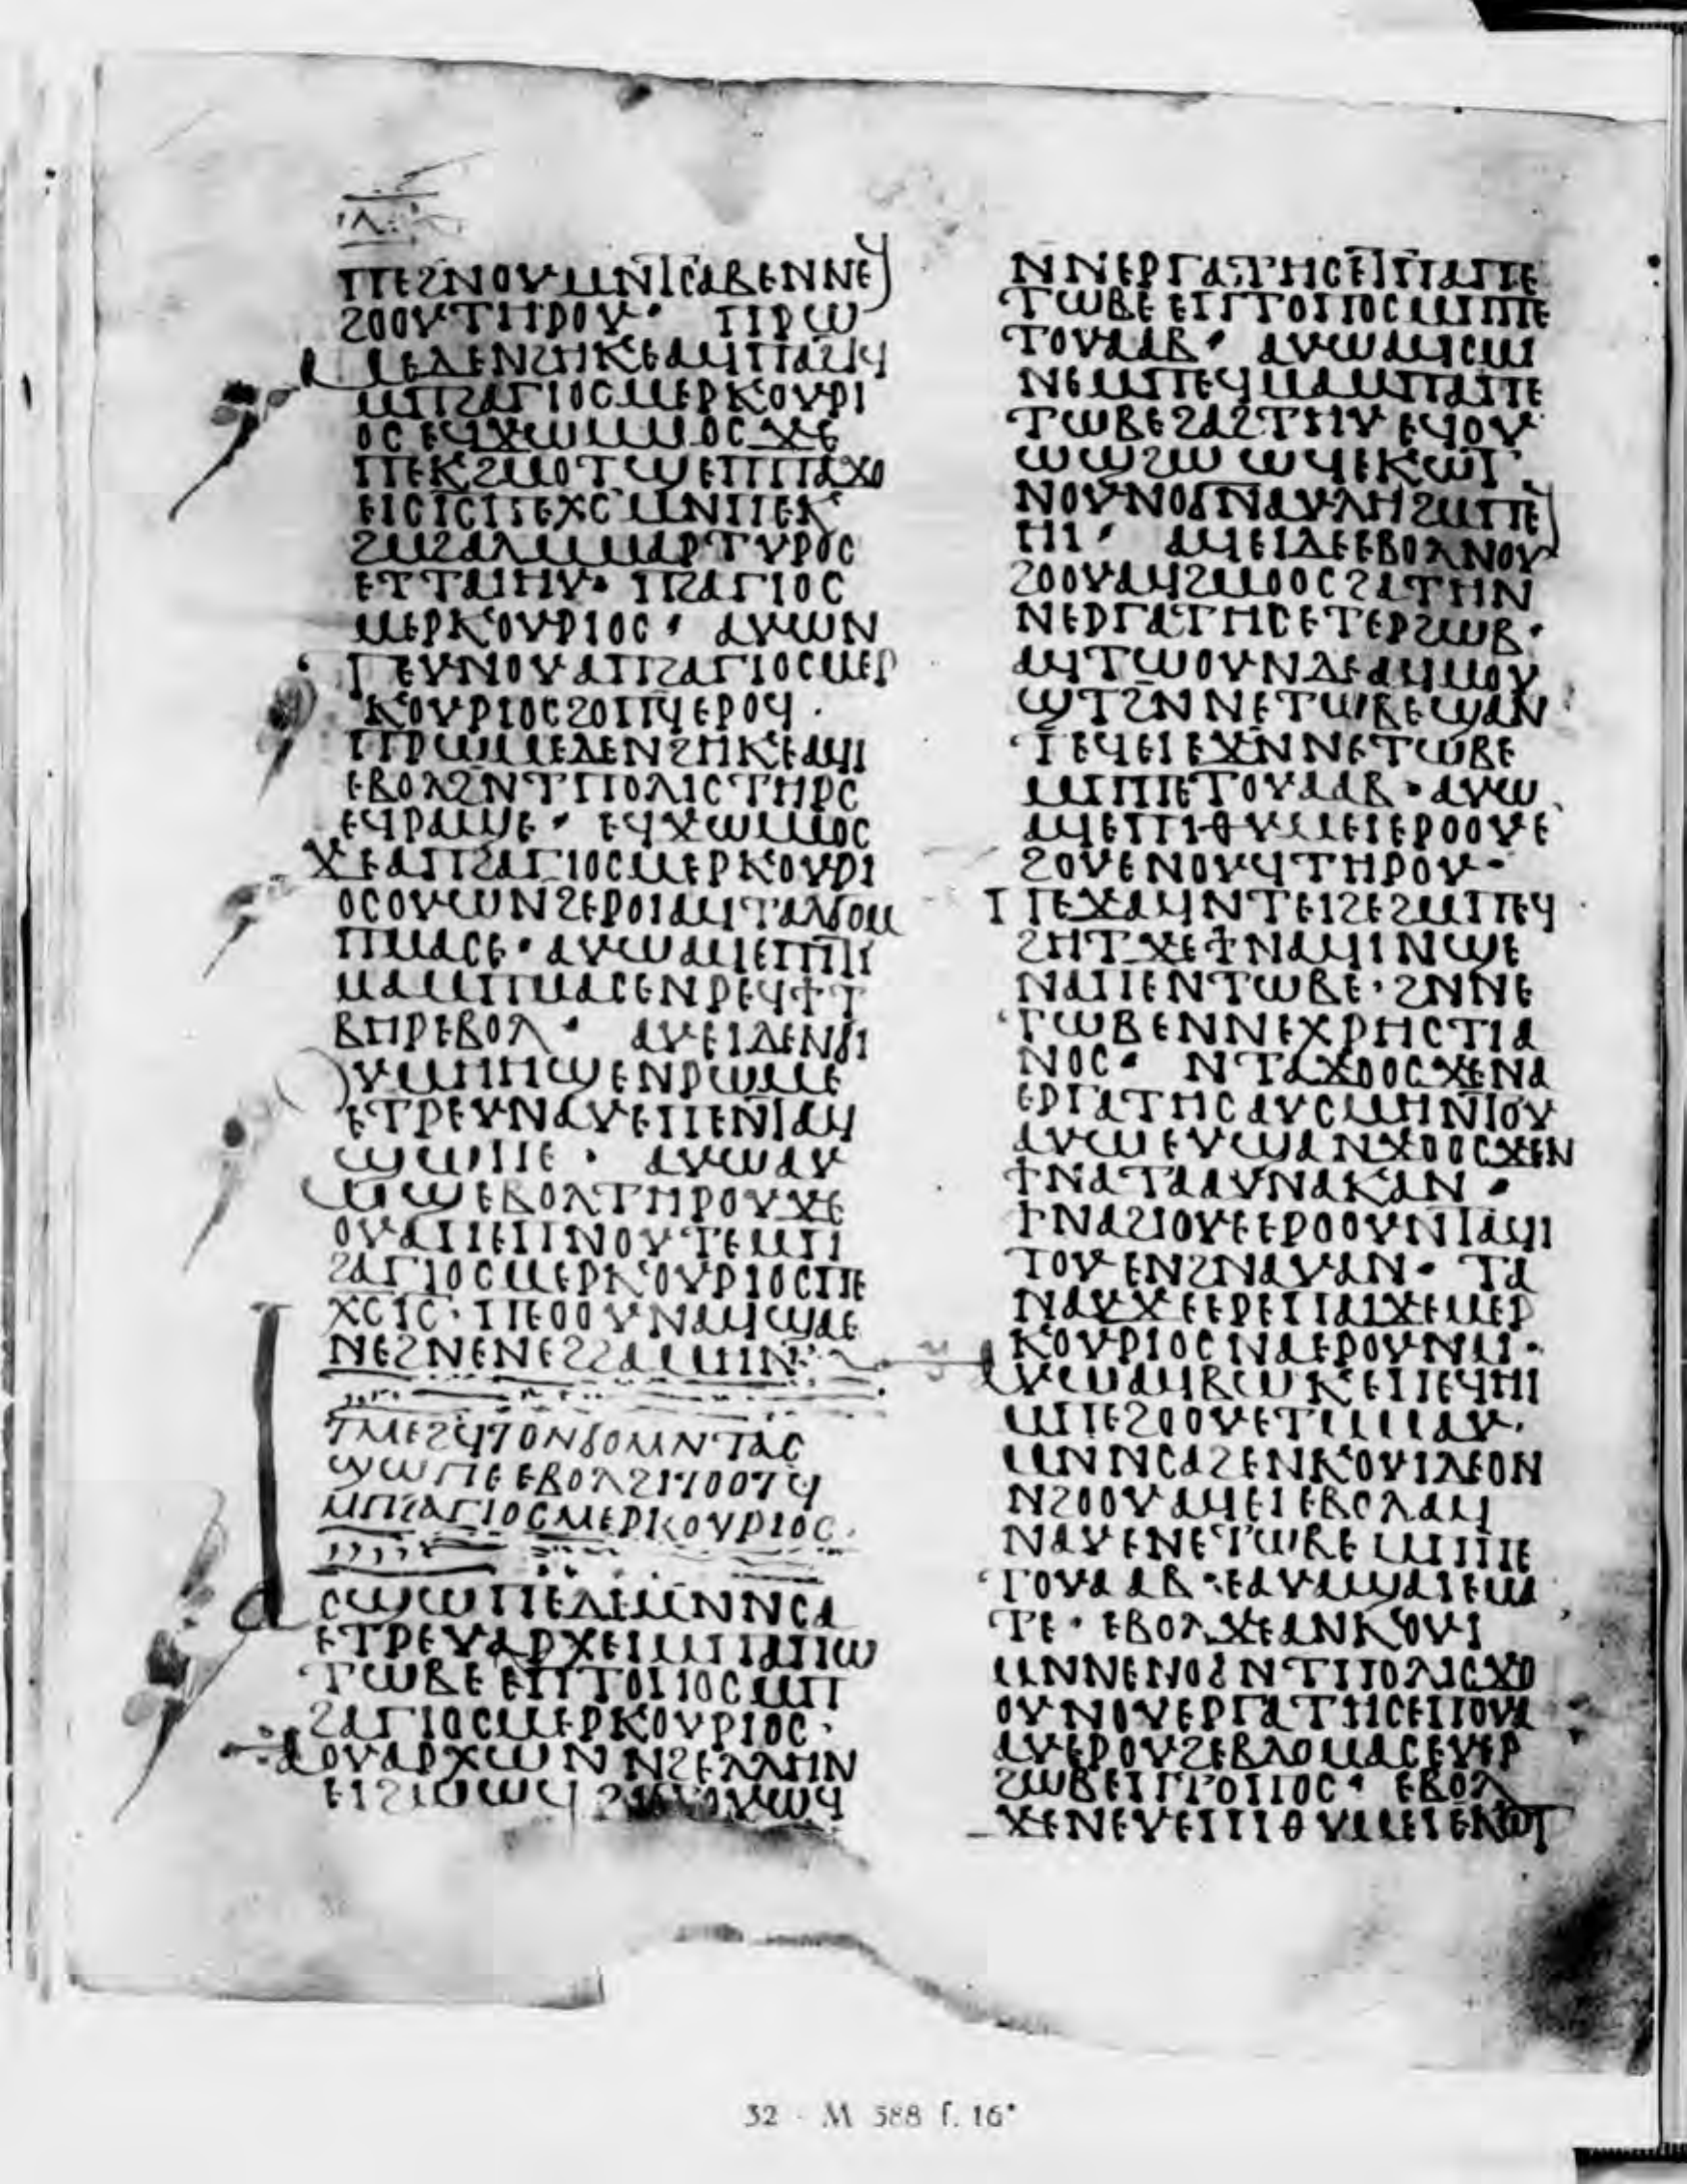 ⲡⲡⲉϩⲛⲟⲩⲙⲛⲓⲥⲁⲃⲉⲛⲛⲉϥ
ϩⲟⲟⲩⲧⲏⲣⲟⲩ· ⲡⲣⲱ
ⲙⲉⲇⲉⲛϩⲏⲕⲉⲁϥⲡⲁϩϥ
ⲙⲡϩⲁⲅⲓⲟⲥⲙⲉⲣⲕⲟⲩⲣⲓ
ⲟⲥⲉϥϫⲱⲙⲙⲟⲥϫⲉ
ⲡⲉⲕϩⲙⲟⲧϣⲉⲡⲡⲁϫⲟ
ⲉⲓⲥⲓⲥⲡⲉⲭⲥⲙⲛⲡⲉⲕ
ϩⲙϩⲁⲗⲙⲙⲁⲣⲧⲩⲣⲟⲥ
ⲉⲧⲧⲁⲓⲏⲩ· ⲡϩⲁⲅⲓⲟⲥ
ⲙⲉⲣⲕⲟⲩⲣⲓⲟⲥ· ⲁⲩⲱⲛ
ⲧⲉⲩⲛⲟⲩⲁⲡϩⲁⲅⲓⲟⲥⲙⲉⲣ
ⲕⲟⲩⲣⲓⲟⲥϩⲟⲡϥⲉⲣⲟϥ·
ⲡⲣⲱⲙⲉⲇⲉⲛϩⲏⲕⲉⲁϥⲓ
ⲉⲃⲟⲗϩⲛⲧⲡⲟⲗⲓⲥⲧⲏⲣⲥ
ⲉϥⲣⲁϣⲉ· ⲉϥϫⲱⲙⲙⲟⲥ
ϫⲉⲁⲡϩⲁⲅⲓⲟⲥⲙⲉⲣⲕⲟⲩⲣⲓ
ⲟⲥⲟⲩⲱⲛϩⲉⲣⲟⲓⲁϥⲧⲁⲗϭⲟⲙ
ⲡⲙⲁⲥⲉ· ⲁⲩⲱⲁϥⲉⲡⲓⲧⲓ
ⲙⲁⲙⲡⲙⲁⲥⲉⲛⲣⲉϥϯⲧ
ⲃⲏⲣⲉⲃⲟⲗ· ⲁⲩⲉⲓⲇⲉⲛϭⲓ
ⲟⲩⲙⲏⲏϣⲉⲛⲣⲱⲙⲉ
ⲉⲧⲣⲉⲩⲛⲁⲩⲉⲡⲉⲛⲧⲁϥ
ϣⲱⲡⲉ· ⲁⲩⲱⲁⲩ
ⲱϣⲉⲃⲟⲗⲧⲏⲣⲟⲩϫⲉ
ⲟⲩⲁⲡⲉⲡⲛⲟⲩⲧⲉⲙⲡ
ϩⲁⲅⲓⲟⲥⲙⲉⲣⲕⲟⲩⲣⲓⲟⲥⲡⲉ
ⲭⲥⲓⲥ·ⲡⲉⲟⲟⲩⲛⲁϥϣⲁⲉ
ⲛⲉϩⲛⲉⲛⲉϩϩⲁⲙⲏⲛ·
ⲧⲙⲉϩϥⲧⲟⲛϭⲟⲙⲛⲧⲁⲥ
ϣⲱⲡⲉⲉⲃⲟⲗϩⲓⲧⲟⲟⲧϥ
ⲙⲡϩⲁⲅⲓⲟⲥⲙⲉⲣⲕⲟⲩⲣⲓⲟⲥ·
ⲁⲥϣⲱⲡⲉⲇⲉⲙⲛⲛⲥⲁ
ⲉⲧⲣⲉⲩⲁⲣⲭⲉⲓⲙⲡⲁⲡⲱ
ⲧⲱⲃⲉⲉⲡⲧⲟⲡⲟⲥⲙⲡ
ϩⲁⲅⲓⲟⲥⲙⲉⲣⲕⲟⲩⲣⲓⲟⲥ·
ⲁⲟⲩⲁⲣⲭⲱⲛⲛϩⲉⲗⲗⲏⲛ
ⲉⲓϩⲓⲱⲱϥ
ⲛⲛⲉⲣⲅⲁⲧⲏⲥⲉⲧⲡⲁⲡⲉ
ⲧⲱⲃⲉⲉⲡⲧⲟⲡⲟⲥⲙⲡⲡⲉ
ⲧⲟⲩⲁⲁⲃ· ⲁⲩⲱⲁϥⲥⲙⲓ
ⲛⲉⲙⲡⲉϥⲙⲁⲙⲡⲁⲡⲉ
ⲧⲱⲃⲉϩⲁϩⲧⲏⲩⲉϥⲟⲩ
ⲱϣϩⲱⲱϥⲉⲕⲱⲧ
ⲛⲟⲩⲛⲟϭⲛⲁⲩⲗⲏϩⲙⲡⲉϥ
ⲏⲓ· ⲁϥⲉⲓⲇⲉⲉⲃⲟⲗⲛⲟⲩ
ϩⲟⲟⲩⲁϥϩⲙⲟⲟⲥϩⲁⲧⲏⲛ
ⲛⲉⲣⲅⲁⲧⲏⲥⲉⲧⲉⲣϩⲱⲃ·
ⲁϥⲧⲱⲟⲩⲛⲇⲉⲁϥⲙⲟⲩ
ϣⲧϩⲛⲛⲉⲧⲱⲃⲉϣⲁⲛ
ⲧⲉϥⲉⲓⲉϫⲛⲛⲉⲧⲱⲃⲉ
ⲙⲡⲡⲉⲧⲟⲩⲁⲁⲃ·ⲁⲩⲱ
ⲁϥⲉⲡⲓⲑⲩⲙⲉⲓⲉⲣⲟⲟⲩⲉ
ϩⲟⲩⲉⲛⲟⲩϥⲧⲏⲣⲟⲩ·
ⲡⲉϫⲁϥⲛⲧⲉⲓϩⲉϩⲙⲡⲉϥ
ϩⲏⲧϫⲉϯⲛⲁϥⲓⲛϣⲉ
ⲛⲁⲡⲉⲛⲧⲱⲃⲉ·ϩⲛⲛⲉ
ⲧⲱⲃⲉⲛⲛⲉⲭⲣⲏⲥⲧⲓⲁ
ⲛⲟⲥ· ⲛⲧⲁϫⲟⲟⲥϫⲉⲛⲁ
ⲉⲣⲅⲁⲧⲏⲥⲁⲩⲥⲙⲏⲛⲧⲟⲩ
ⲁⲩⲱⲉⲩϣⲁⲛϫⲟⲟⲥϫⲉⲛ
ϯⲛⲁⲧⲁⲁⲩⲛⲁⲕⲁⲛ·
ϯⲛⲁϩⲓⲟⲩⲉⲉⲣⲟⲟⲩⲛⲧⲁϥⲓ
ⲧⲟⲩⲉⲛϩⲛⲁⲩⲁⲛ· ⲧⲁ
ⲛⲁⲩϫⲉⲉⲣⲉⲡⲁⲓϫⲉⲙⲉⲣ
ⲕⲟⲩⲣⲓⲟⲥⲛⲁⲉⲣⲟⲩⲛⲁⲓ·
ⲁⲩⲱⲁϥⲃⲱⲕⲉⲡⲉϥⲏⲓ
ⲙⲡⲉϩⲟⲟⲩⲉⲧⲙⲙⲁⲩ·
ⲙⲛⲛⲥⲁϩⲉⲛⲕⲟⲩⲓⲇⲉⲟⲛ
ⲛϩⲟⲟⲩⲁϥⲉⲓⲉⲃⲟⲗⲁϥ
ⲛⲁⲩⲉⲛⲉⲧⲱⲃⲉⲙⲡⲡⲉ
ⲧⲟⲩⲁⲁⲃ·ⲉⲁⲩⲁϣⲁⲓⲉⲙⲁ
ⲧⲉ· ⲉⲃⲟⲗϫⲉⲁⲛⲕⲟⲩⲓ
ⲙⲛⲛⲉⲛⲟϭⲛⲧⲡⲟⲗⲓⲥϫⲟ
ⲟⲩⲛⲟⲩⲉⲣⲅⲁⲧⲏⲥⲉⲡⲟⲩⲁ
ⲁⲩⲉⲣⲟⲩϩⲉⲃⲇⲟⲙⲁⲥⲉⲩⲉⲣ
ϩⲱⲃⲉⲡⲧⲟⲡⲟⲥ· ⲉⲃⲟⲗ
ϫⲉⲛⲉⲩⲉⲡⲓⲑⲩⲙⲉⲓⲉⲕⲱⲧ
32 · M 588 f. 16ᵛ